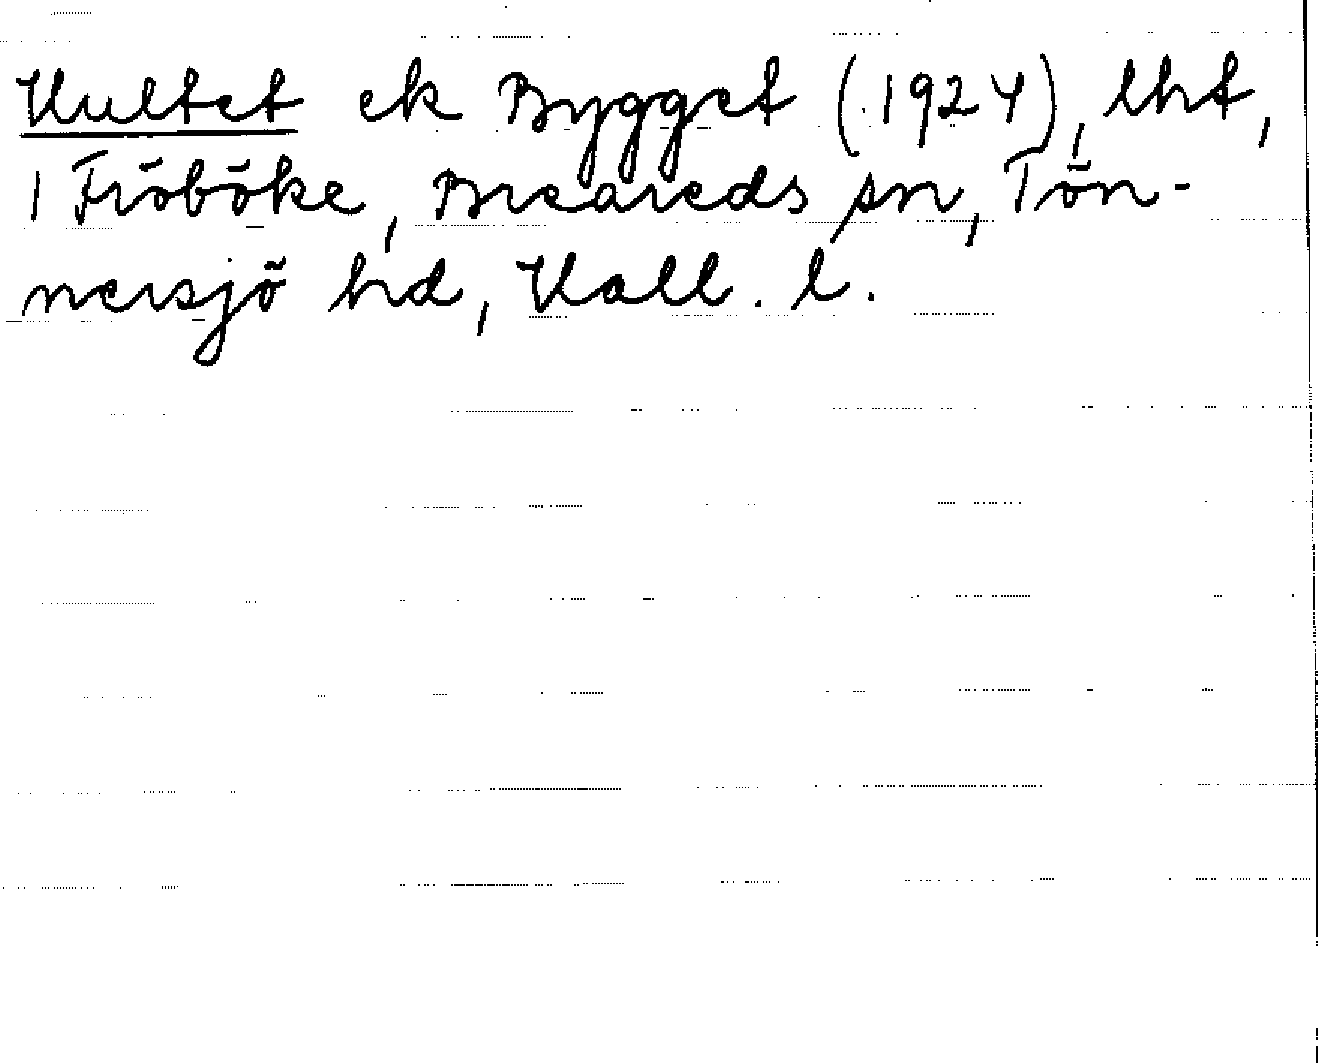 Hultet ek Bygget (1924), lht,
1 Fröböke, Breareds sn, Tön-
nersjö hd, Hall. l.